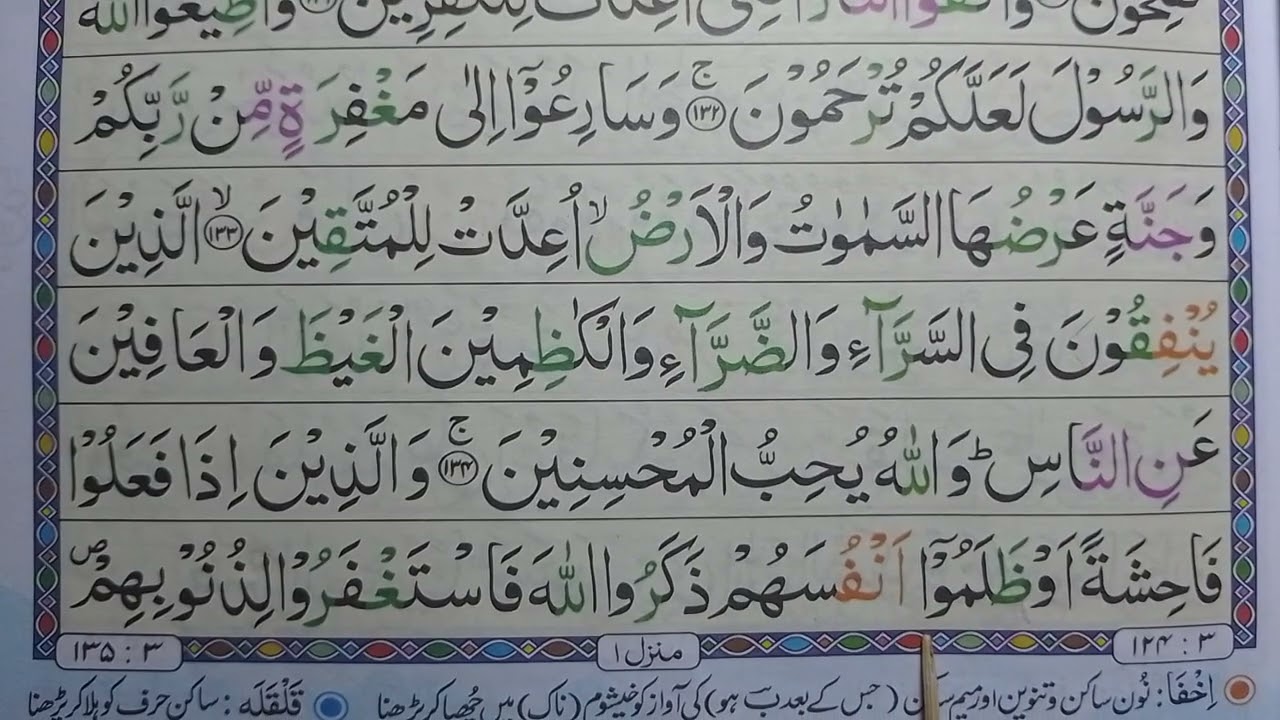 تُفْلِحُوْنَ وَاتَّقُوا النَّارَ الَّتِیْۤ اُعِدَّتْ لِلْكٰفِرِیْنَ وَاَطِیْعُوا اللّٰهَ
وَالرَّسُوْلَ لَعَلَّكُمْ تُرْحَمُوْنَ ۚ﴿۱۳۲﴾ وَسَارِعُوْۤا اِلٰی مَغْفِرَةٍ مِّنْ رَّبِّكُمْ
وَجَنَّةٍ عَرْضُهَا السَّمٰوٰتُ وَالْاَرْضُ ۙ اُعِدَّتْ لِلْمُتَّقِیْنَ ۙ﴿۱۳۳﴾ الَّذِیْنَ
یُنْفِقُوْنَ فِی السَّرَّآءِ وَالضَّرَّآءِ وَالْكٰظِمِیْنَ الْغَیْظَ وَالْعَافِیْنَ
عَنِ النَّاسِ ؕ وَاللّٰهُ یُحِبُّ الْمُحْسِنِیْنَ ۚ﴿۱۳۴﴾ وَالَّذِیْنَ اِذَا فَعَلُوْا
فَاحِشَةً اَوْ ظَلَمُوْۤا اَنْفُسَهُمْ ذَكَرُوا اللّٰهَ فَاسْتَغْفَرُوْا لِذُنُوْبِهِمْ ۪
۳ : ۱۲۴ منزل ۱ ۳ : ۱۳۵
اِخْفَا : نُون ساکن و تنوین اور میم ساکن ( جس کے بعد ب ہو) کی آواز کو خیشوم (ناک) میں چُھپا کر پڑھنا قَلْقَلَه : ساکن حرف کو ہلا کر پڑھنا